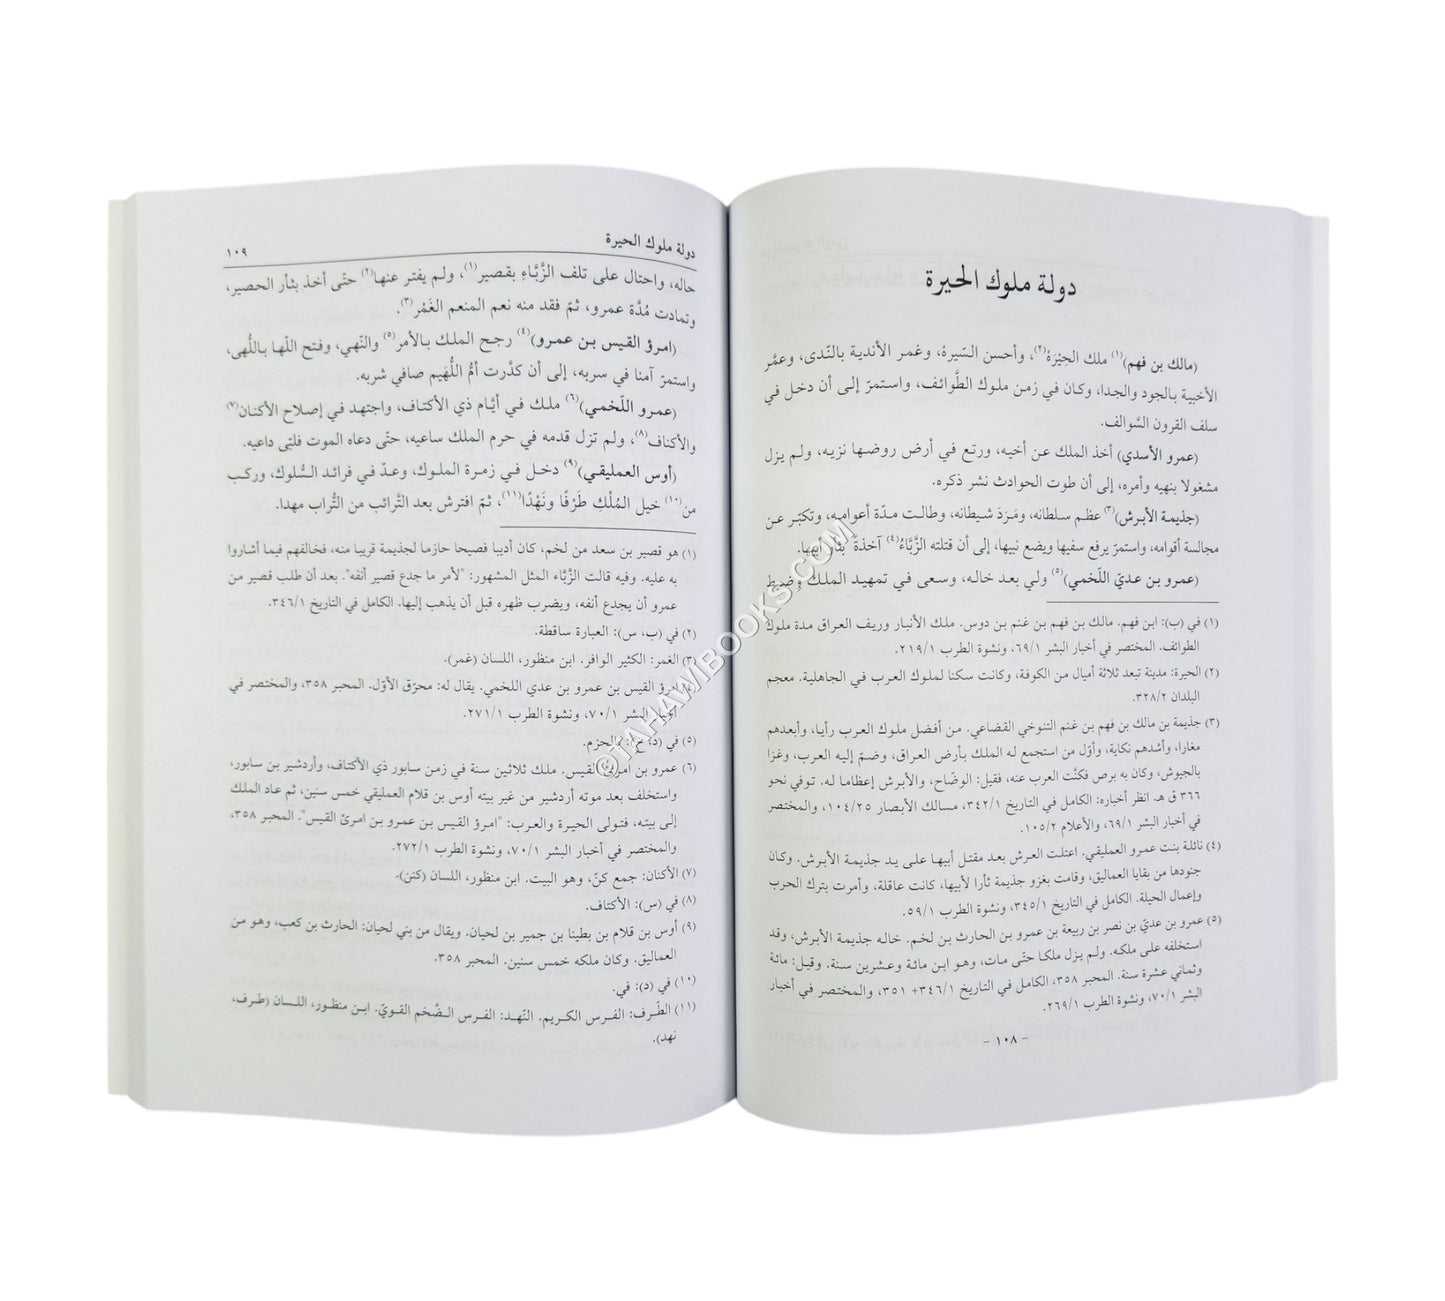 دولة ملوك الحيرة
(مالك بن فهم)(١) ملك الحِيْرَة(٢)، وأحسن السّيرة، وغمر الأندية بالنّدى، وعمَّر
الأخبية بالجود والجدا، وكان في زمن ملوك الطَّوائف، واستمرّ إلى أن دخل في
سلف القرون السَّوالف.
(عمرو الأسدي) أخذ الملك عن أخيه، ورتع في أرض روضها نزيه، ولم يزل
مشغولا بنهيه وأمره، إلى أن طوت الحوادث نشر ذكره.
(جذيمة الأبرش)(٣) عظم سلطانه، ومَرَدَ شيطانه، وطالت مدّة أعوامه، وتكبّر عن
مجالسة أقوامه، واستمرّ يرفع سفيها ويضع نبيها، إلى أن قتلته الزَّبَّاءُ(٤) آخذةً بثأر أبيها.
(عمرو بن عديّ اللّخمي)(٥) ولي بعد خاله، وسعى في تمهيد الملك وضبط
(١) في (ب): ابن فهم. مالك بن فهم بن غنم بن دوس. ملك الأنبار وريف العراق مدة ملوك
الطوائف. المختصر في أخبار البشر ٦٩/١، ونشوة الطرب ٢١٩/١.
(٢) الحيرة: مدينة تبعد ثلاثة أميال من الكوفة، وكانت سكنا لملوك العرب في الجاهلية. معجم
البلدان ٣٢٨/٢.
(٣) جذيمة بن مالك بن فهم بن غنم التنوخي القضاعي. من أفضل ملوك العرب رأيا، وأبعدهم
مغارا، وأشدهم نكاية، وأوّل من استجمع له الملك بأرض العراق، وضمّ إليه العرب، وغزا
بالجيوش، وكان به برص فكنَّت العرب عنه، فقيل: الوضّاح، والأبرش إعظاما له. توفي نحو
٣٦٦ ق هـ. انظر أخباره: الكامل في التاريخ ٣٤٢/١، مسالك الأبصار ١٠٤/٢٥، والمختصر
في أخبار البشر ٦٩/١، والأعلام ١٠٥/٢.
(٤) نائلة بنت عمرو العمليقي. اعتلت العرش بعد مقتل أبيها على يد جذيمة الأبرش. وكان
جنودها من بقايا العماليق، وقامت بغزو جذيمة ثأرا لأبيها، كانت عاقلة، وأمرت بترك الحرب
وإعمال الحيلة. الكامل في التاريخ ٣٤٥/١، ونشوة الطرب ٥٩/١.
(٥) عمرو بن عديّ بن نصر بن ربيعة بن عمرو بن الحارث بن لخم. خاله جذيمة الأبرش، وقد
استخلفه على ملكه. ولم يزل ملكا حتّى مات، وهو ابن مائة وعشرين سنة. وقيل: مائة
وثماني عشرة سنة. المحبر ٣٥٨، الكامل في التاريخ ٣٤٦/١+ ٣٥١، والمختصر في أخبار
البشر ٧٠/١، ونشوة الطرب ٢٦٩/١.
- ١٠٨ -
دولة ملوك الحيرة ١٠٩
حاله، واحتال على تلف الزَّبَّاءِ بقصير(١)، ولم يفتر عنها(٢) حتّى أخذ بثأر الحصير،
وتمادت مُدَّة عمرو، ثمّ فقد منه نعم المنعم الغَمْر(٣).
(امرؤ القيس بن عمرو)(٤) رجح الملك بالأمر(٥) والنّهي، وفتح اللّها باللُّهى،
واستمرّ آمنا في سربه، إلى أن كدَّرت أمُّ اللُّهَيم صافي شربه.
(عمرو اللّخمي)(٦) ملك في أيَّام ذي الأكتاف، واجتهد في إصلاح الأكنان(٧)
والأكناف(٨)، ولم تزل قدمه في حرم الملك ساعيه، حتّى دعاه الموت فلبّى داعيه.
(أوس العمليقي)(٩) دخل في زمرة الملوك، وعدّ في فرائد السُّلوك، وركب
من(١٠) خيل المُلْكِ طَرْفًا ونَهْدًا(١١)، ثمّ افترش بعد التَّرائب من التُّراب مهدا.
(١) هو قصير بن سعد من لخم، كان أديبا فصيحا حازما لجذيمة قريبا منه، فخالفهم فيما أشاروا
به عليه. وفيه قالت الزَّبَّاء المثل المشهور: "لأمر ما جدع قصير أنفه". بعد أن طلب قصير من
عمرو أن يجدع أنفه، ويضرب ظهره قبل أن يذهب إليها. الكامل في التاريخ ٣٤٦/١.
(٢) في (ب، س): العبارة ساقطة.
(٣) الغمر: الكثير الوافر. ابن منظور، اللسان (غمر).
(٤) امرؤ القيس بن عمرو بن عدي اللخمي. يقال له: محرّق الأوّل. المحبر ٣٥٨، والمختصر في
أخبار البشر ٧٠/١، ونشوة الطرب ٢٧١/١.
(٥) في (د، ح): بالحزم.
(٦) عمرو بن امرئ القيس. ملك ثلاثين سنة في زمن سابور ذي الأكتاف، وأردشير بن سابور،
واستخلف بعد موته أردشير من غير بيته أوس بن قلام العمليقي خمس سنين، ثم عاد الملك
إلى بيته، فتولى الحيرة والعرب: "امرؤ القيس بن عمرو بن امرئ القيس". المحبر ٣٥٨،
والمختصر في أخبار البشر ٧٠/١، ونشوة الطرب ٢٧٢/١.
(٧) الأكنان: جمع كنّ، وهو البيت. ابن منظور، اللسان (كنن).
(٨) في (س): الأكتاف.
(٩) أوس بن قلام بن بطينا بن جمير بن لحيان. ويقال من بني لحيان: الحارث بن كعب، وهو من
العماليق. وكان ملكه خمس سنين. المحبر ٣٥٨.
(١٠) في (د): في.
(١١) الطَّرف: الفرس الكريم. النَّهد: الفرس الضّخم القويّ. ابن منظور، اللسان (طرف،
نهد).
©TAHAWIBOOKS.COM